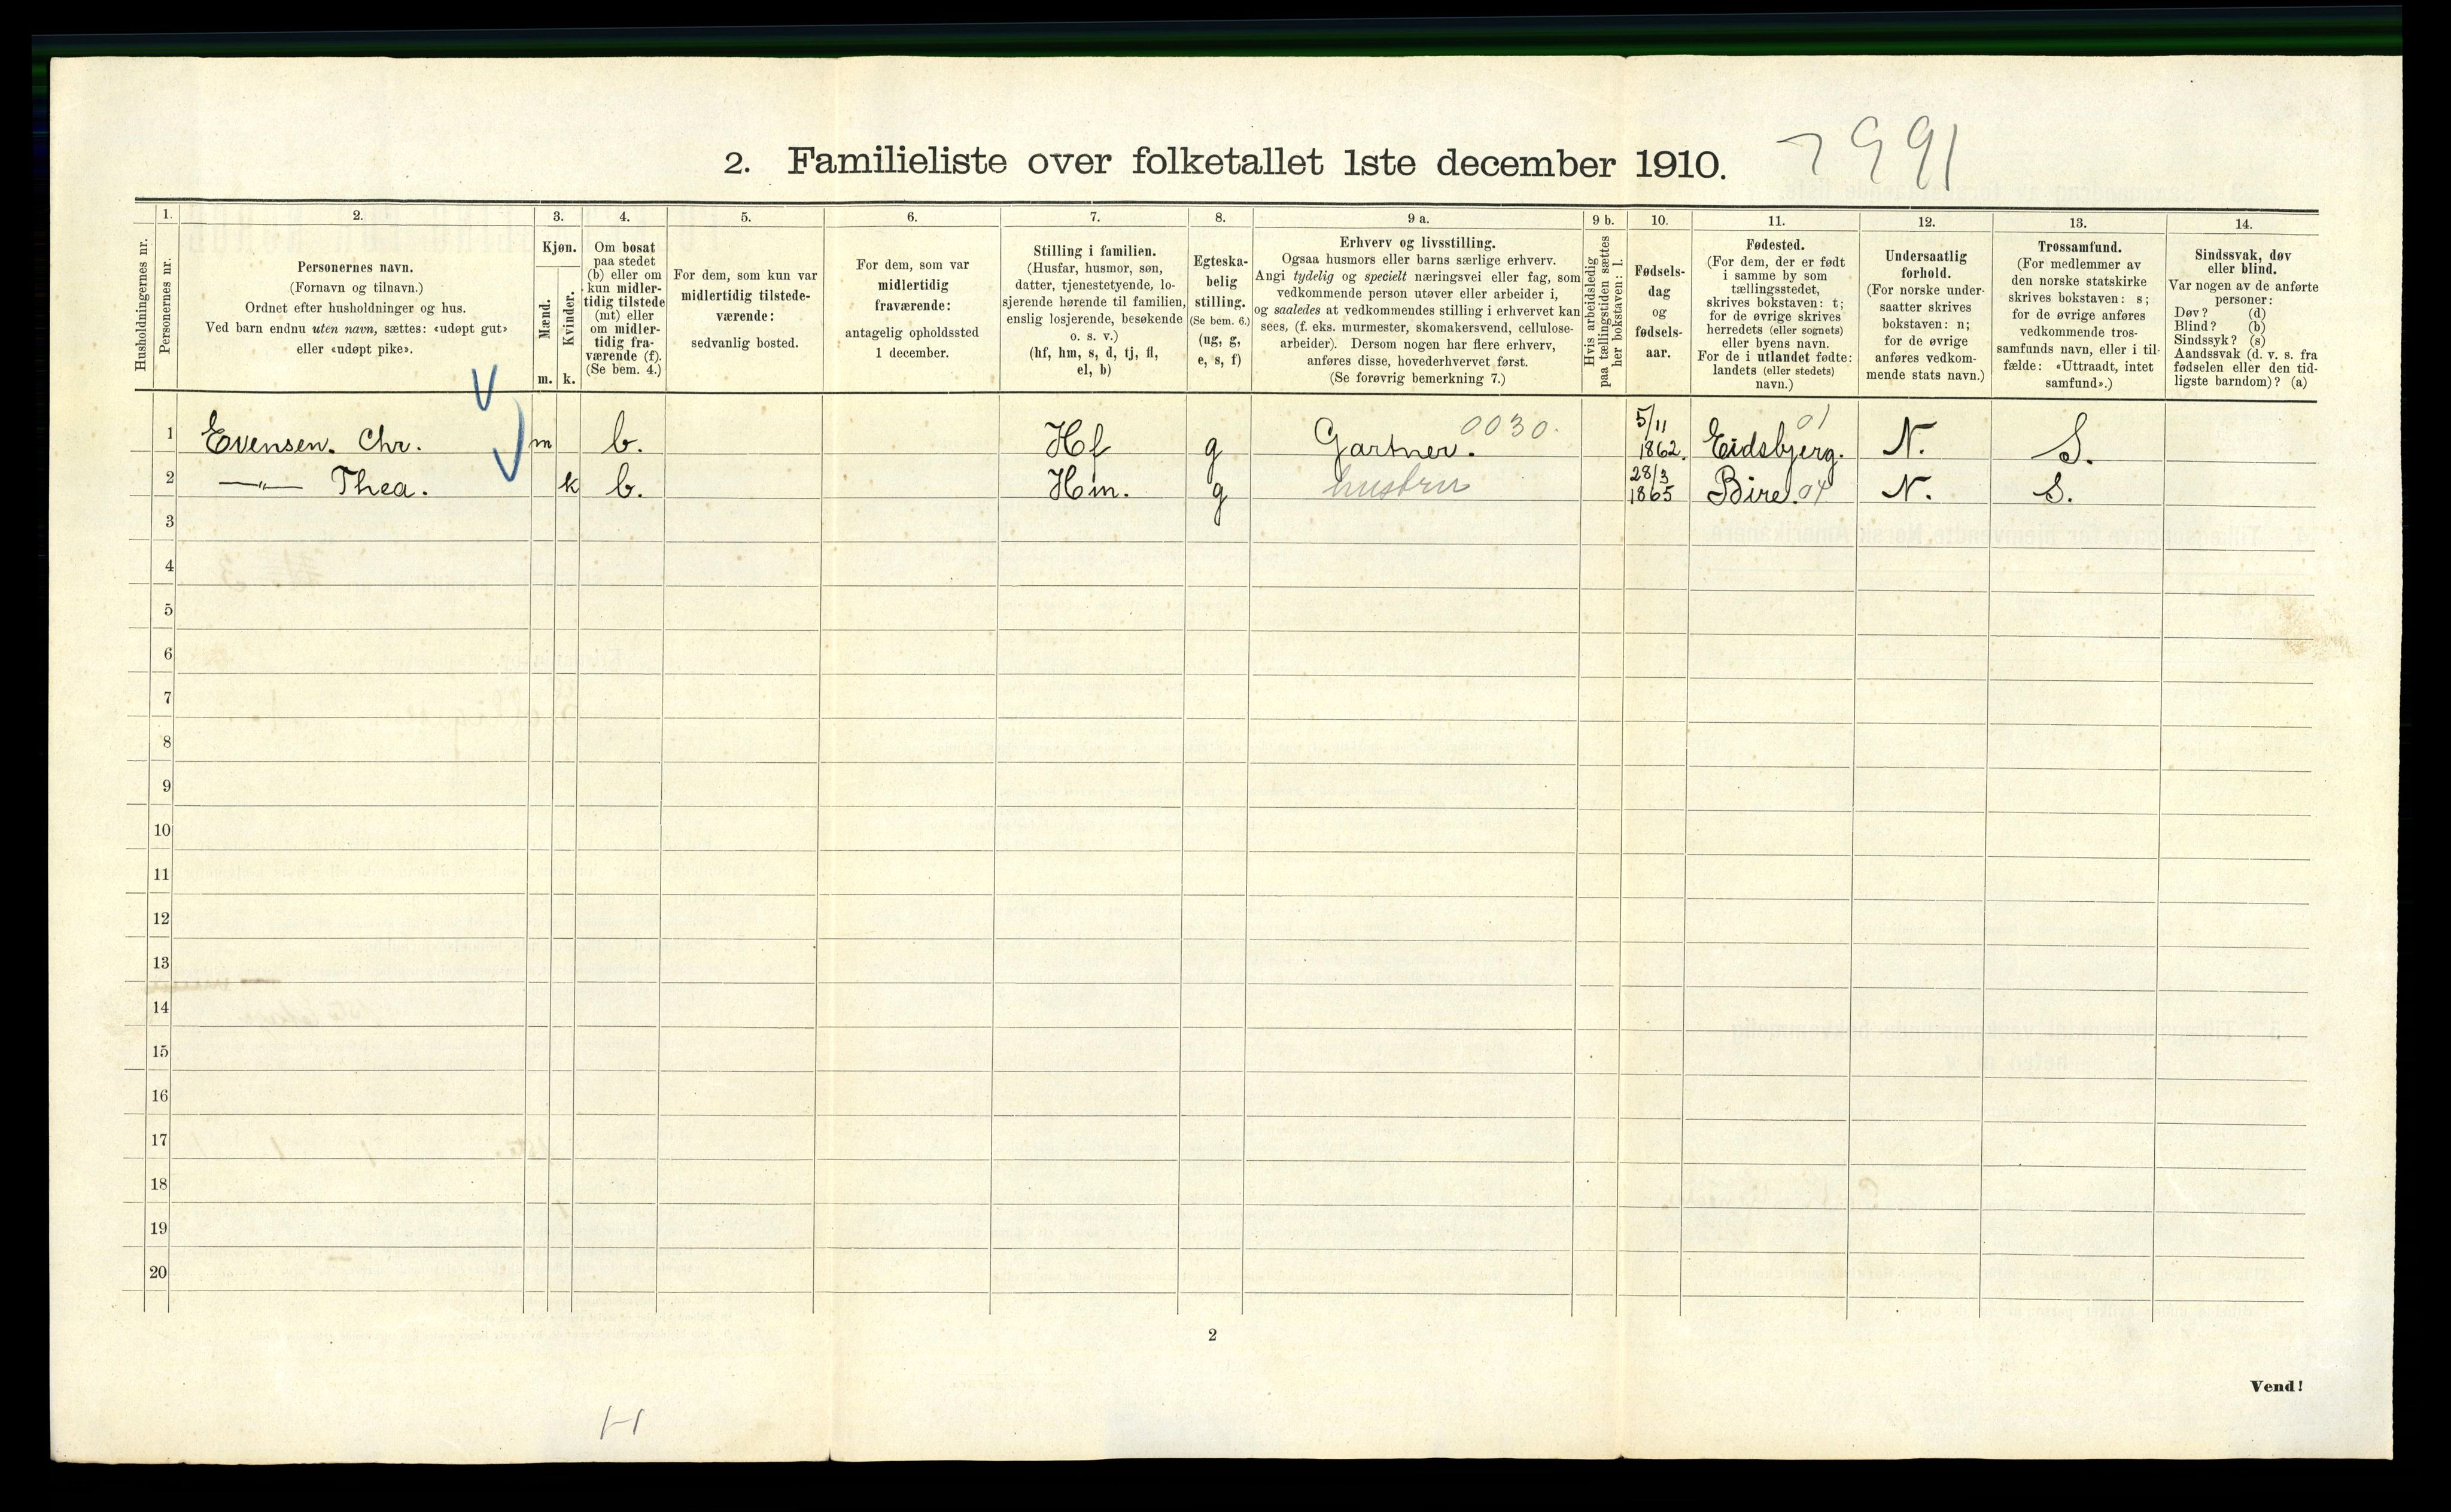 2. Familieliste over folketallet 1ste december 1910. 7991
Husholdningernes nr.
1.
Personernes nr.
2.
Personernes navn.
(Fornavn og tilnavn.)
Ordnet efter husholdninger og hus.
Ved barn endnu uten navn, sættes: «udøpt gut»
eller «udøpt pike».
3.
Kjøn.
Mænd.
Kvinder.
m. k.
4.
Om bosat
paa stedet
(b) eller om
kun midler-
tidig tilstede
(mt) eller
om midler-
tidig fra-
værende (f).
(Se bem. 4.)
5.
For dem, som kun var
midlertidig tilstede-
værende:
sedvanlig bosted.
6.
For dem, som var
midlertidig
fraværende:
antagelig opholdssted
1 december.
7.
Stilling i familien.
(Husfar, husmor, søn,
datter, tjenestetyende, lo-
sjerende hørende til familien,
enslig losjerende, besøkende
o. s. v.)
(hf, hm, s, d, tj, fl,
el, b)
8.
Egteska-
belig
stilling.
(Se bem. 6.)
(ug, g,
e, s, f)
9 a.
Erhverv og livsstilling.
Ogsaa husmors eller barns særlige erhverv.
Angi tydelig og specielt næringsvei eller fag, som
vedkommende person utøver eller arbeider i,
og saaledes at vedkommendes stilling i erhvervet kan
sees, (f. eks. murmester, skomakersvend, cellulose-
arbeider). Dersom nogen har flere erhverv,
anføres disse, hovederhvervet først.
(Se forøvrig bemerkning 7.)
9 b.
Hvis arbeidsledig
paa tællingstiden sættes
her bokstaven: l.
10.
Fødsels-
dag
og
fødsels-
aar.
11.
Fødested.
(For dem, der er født
i samme by som
tællingsstedet,
skrives bokstaven: t;
for de øvrige skrives
herredets (eller sognets)
eller byens navn.
For de i utlandet fødte:
landets (eller stedets)
navn.)
12.
Undersaatlig
forhold.
(For norske under-
saatter skrives
bokstaven: n;
for de øvrige
anføres vedkom-
mende stats navn.)
13.
Trossamfund.
(For medlemmer av
den norske statskirke
skrives bokstaven: s;
for de øvrige anføres
vedkommende tros-
samfunds navn, eller i til-
fælde: «Uttraadt, intet
samfund».)
14.
Sindssvak, døv
eller blind.
Var nogen av de anførte
personer:
Døv? (d)
Blind? (b)
Sindssyk? (s)
Aandssvak (d. v. s. fra
fødselen eller den tid-
ligste barndom)? (a)
1 Evensen. Chr. m b. Hf g Gartner. 0030. 5/11 1862. Eidsbjerg. 01 N. S.
2 —"— Thea. k b. Hm. g hustru 28/3 1865 Bire. 04 N. S.
3
4
5
6
7
8
9
10
11
12
13
14
15
16
17
18
19
20
2
Vend!